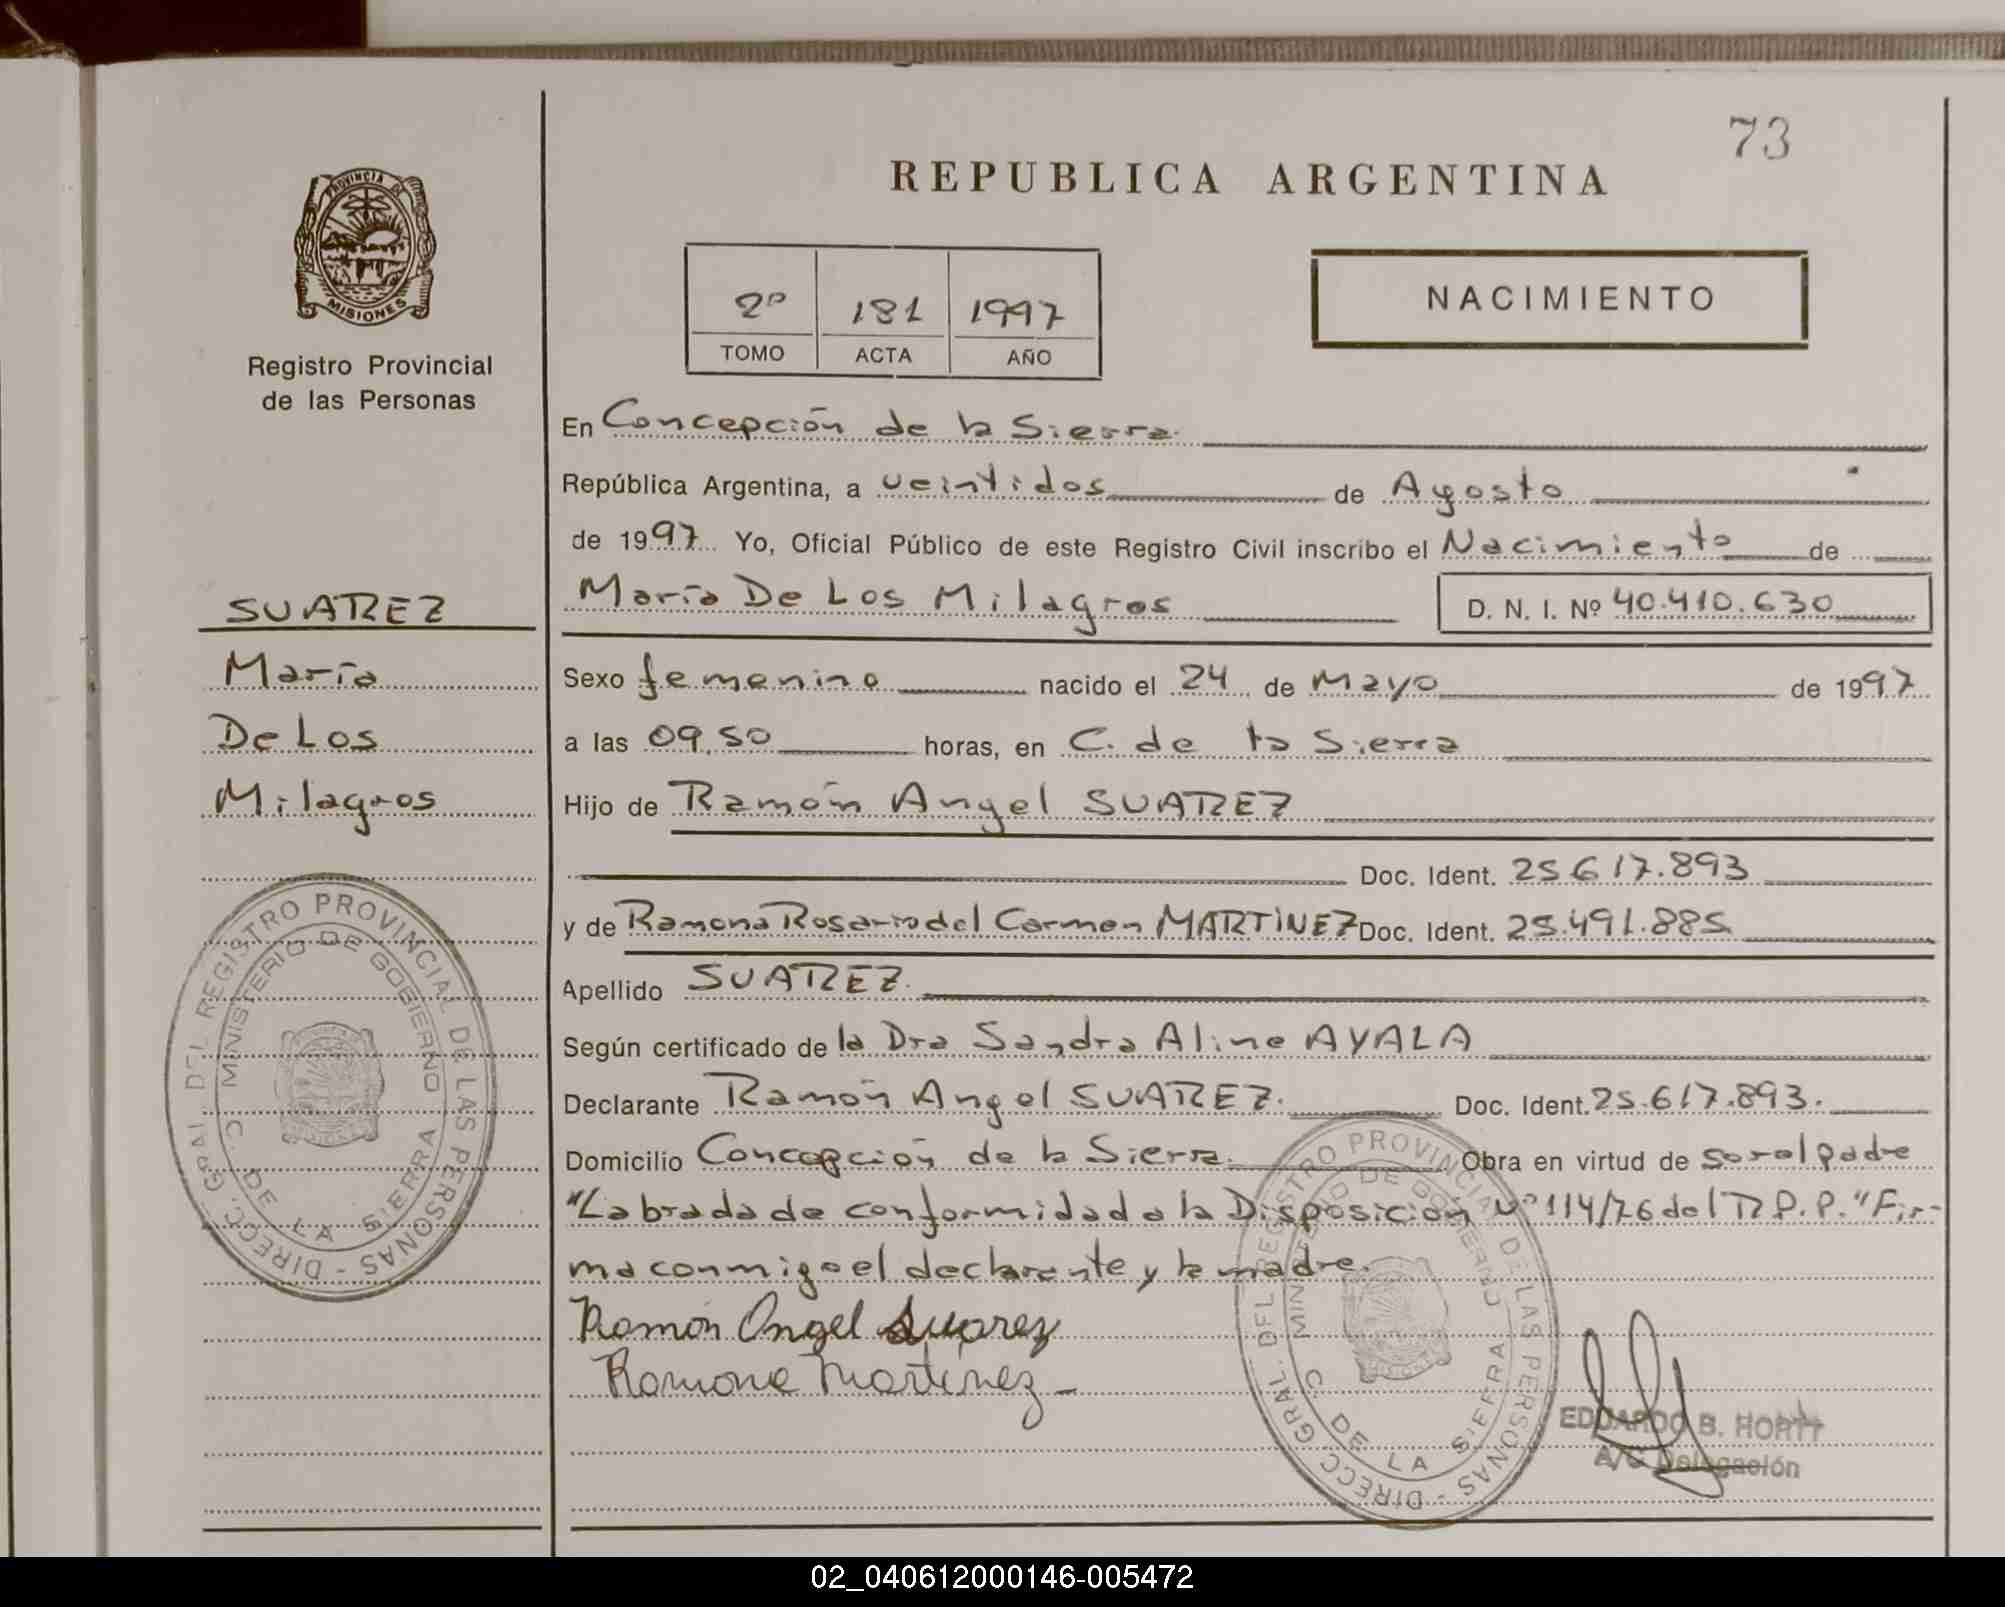 73
REPUBLICA ARGENTINA
PROVINCIA DE
MISIONES
Registro Provincial
de las Personas
2º 181 1997
TOMO ACTA AÑO
NACIMIENTO
En Concepción de la Sierra
República Argentina, a veintidos de Agosto
de 1997 Yo, Oficial Público de este Registro Civil inscribo el Nacimiento de
María De Los Milagros D. N. I. Nº 40.410.630
SUAREZ
María
De Los
Milagros
Sexo femenino nacido el 24 de Mayo de 1997
a las 09,50 horas, en C. de la Sierra
Hijo de Ramón Angel SUAREZ
Doc. Ident. 25.617.893
y de Ramona Rosario del Carmen MARTINEZ Doc. Ident. 25.491.885
Apellido SUAREZ
Según certificado de la Dra Sandra Aline AYALA
Declarante Ramón Angel SUAREZ. Doc. Ident. 25.617.893.
Domicilio Concepción de la Sierra. Obra en virtud de ser el padre
"Labrada de conformidad a la Disposición Nº 114/76 del R.P.P." Fir-
ma conmigo el declarante y la madre.
Ramón Angel Suarez
Ramona Martinez
DIRECC. GRAL. DEL REGISTRO PROVINCIAL DE LAS PERSONAS -
MINISTERIO DE GOBIERNO
C. DE LA SIERRA
DIRECC. GRAL. DEL REGISTRO PROVINCIAL DE LAS PERSONAS -
MINISTERIO DE GOBIERNO
C. DE LA SIERRA
EDUARDO B. HORTT
A/C Delegación
02_040612000146-005472